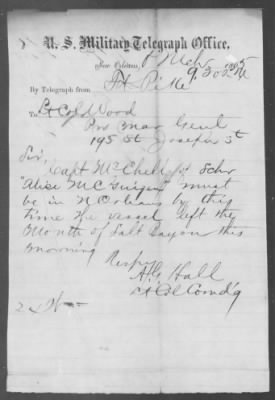 U. S. Military Telegraph Office,
New Orleans, 1 Mch 1865
9.30
By Telegraph from Ft Pike
To Lt Col Wood
Pro Mar Genl
195 St Josefs St
Sir,
Capt McChell of Schr
"Alice McGuigen" must
be in N Orleans by this
time the vessel left the
Mouth of Salt Bayou this
morning
Respy
A G Hall
Lt Col Comdg